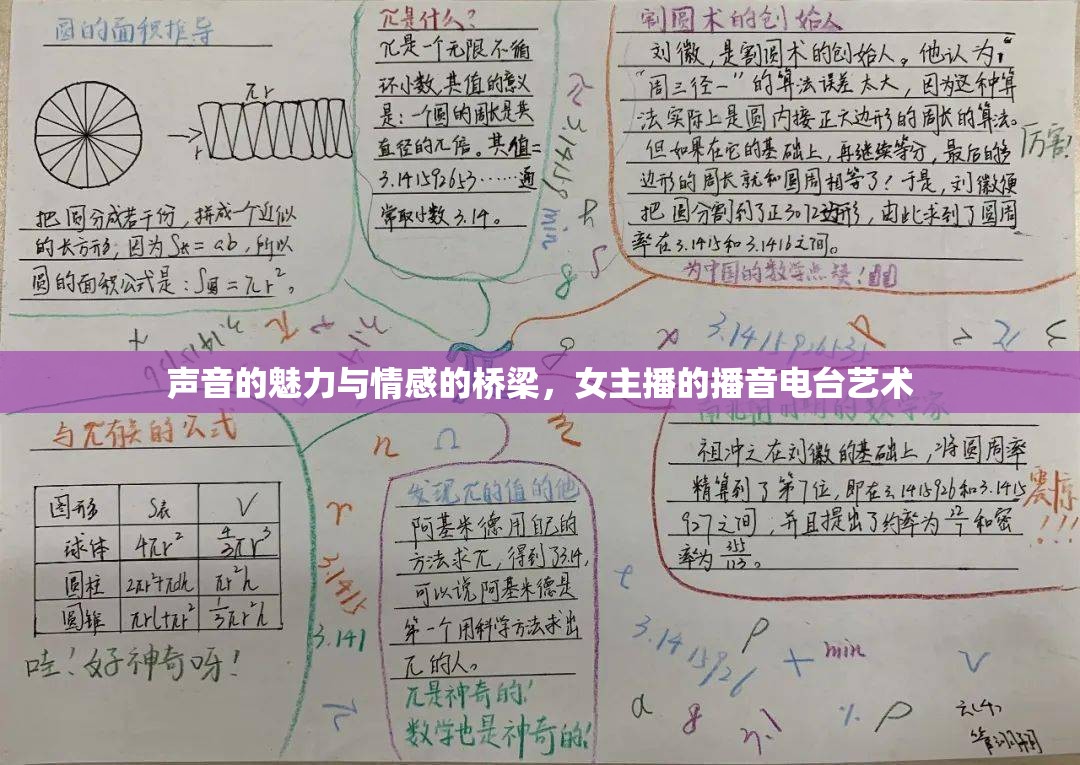 圆的面积推导
πr
r
把圆分成若干份，拼成一个近似
的长方形；因为S长＝ab，所以
圆的面积公式是：S圆＝πr²。
π是什么？
π是一个无限不循
环小数，其值的意义
是：一个圆的周长是其
直径的π倍。其值=
3.141592653……通
常取小数3.14。
π 3.14159
min
8
割圆术的创始人
刘徽，是割圆术的创始人。他认为：“
“周三径一”的算法误差太大，因为这种算
法实际上是圆内接正六边形的周长的算法。
但如果在它的基础上，再继续等分，最后的多
边形的周长就和圆周相等了！于是，刘徽便
把圆分割到了正3072边形，由此求到了圆周
率在3.1415和3.1416之间。
厉害！
为中国的数学点赞！
3.1415926535
声音的魅力与情感的桥梁，女主播的播音电台艺术
与π有关的公式
图形 S表 V
球体 4πr² 4/3πr³
圆柱 2πr²+πdh πr²h
圆锥 πrl+πr² 1/3πr²h
哇！好神奇呀！
n Ω
r
3.1415
3.141
π
发现π的值的他
阿基米德用自己的
方法求π，得到了3.14，
可以说阿基米德是
第一个用科学方法求出
π的人。
π是神奇的！
数学也是神奇的！
祖冲之在刘徽的基础上，将圆周率
精算到了第7位，即在3.1415926和3.1415
927之间，并且提出了约率为22/7和密
率为355/113。
震惊！！！
t
3.1415926
ρ
+
min
V
a
8
%
ρ